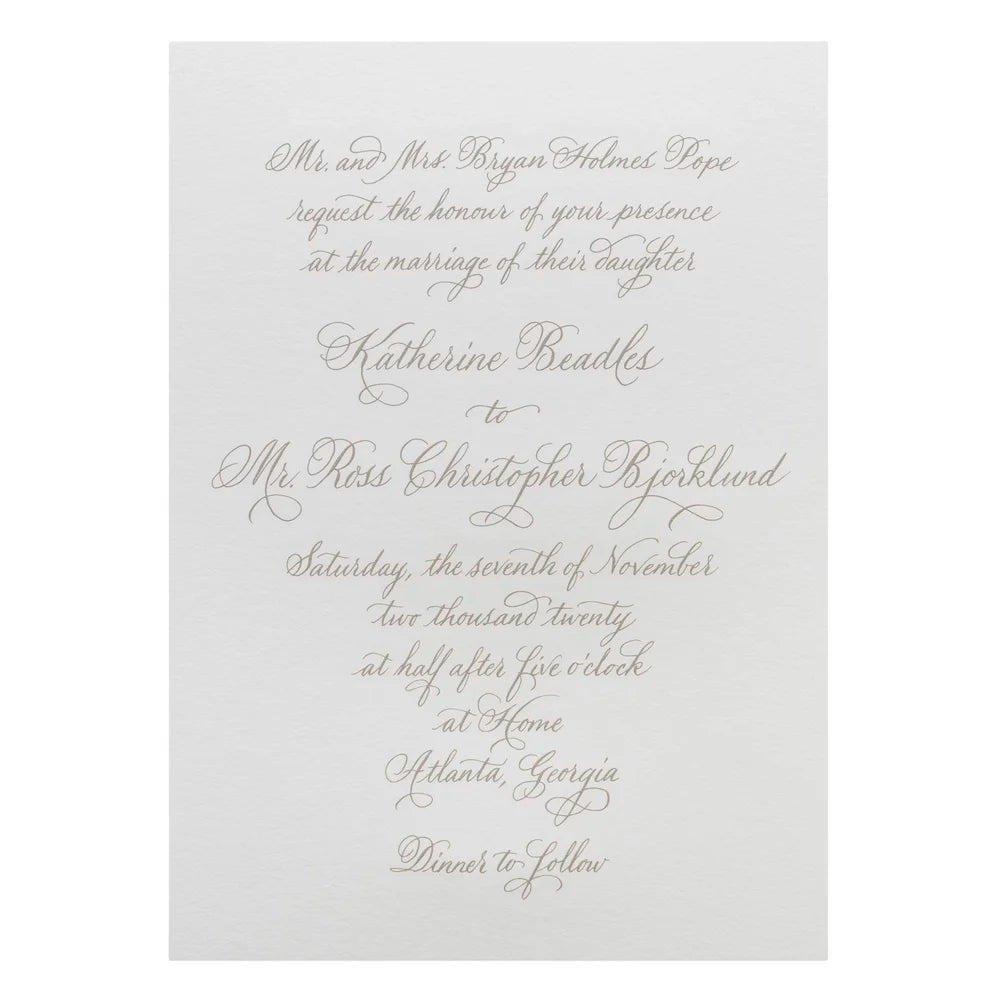 Mr. and Mrs. Bryan Holmes Pope
request the honour of your presence
at the marriage of their daughter
Katherine Beadles
to
Mr. Ross Christopher Bjorklund
Saturday, the seventh of November
two thousand twenty
at half after five o'clock
at Home
Atlanta, Georgia
Dinner to follow